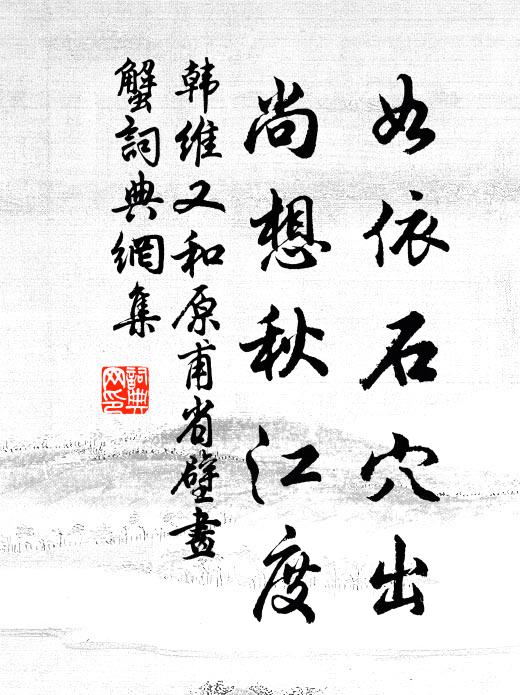 如依石穴出
尚想秋江度
韩维又和原甫省壁畫
蟹詞典網集
詞典
网印